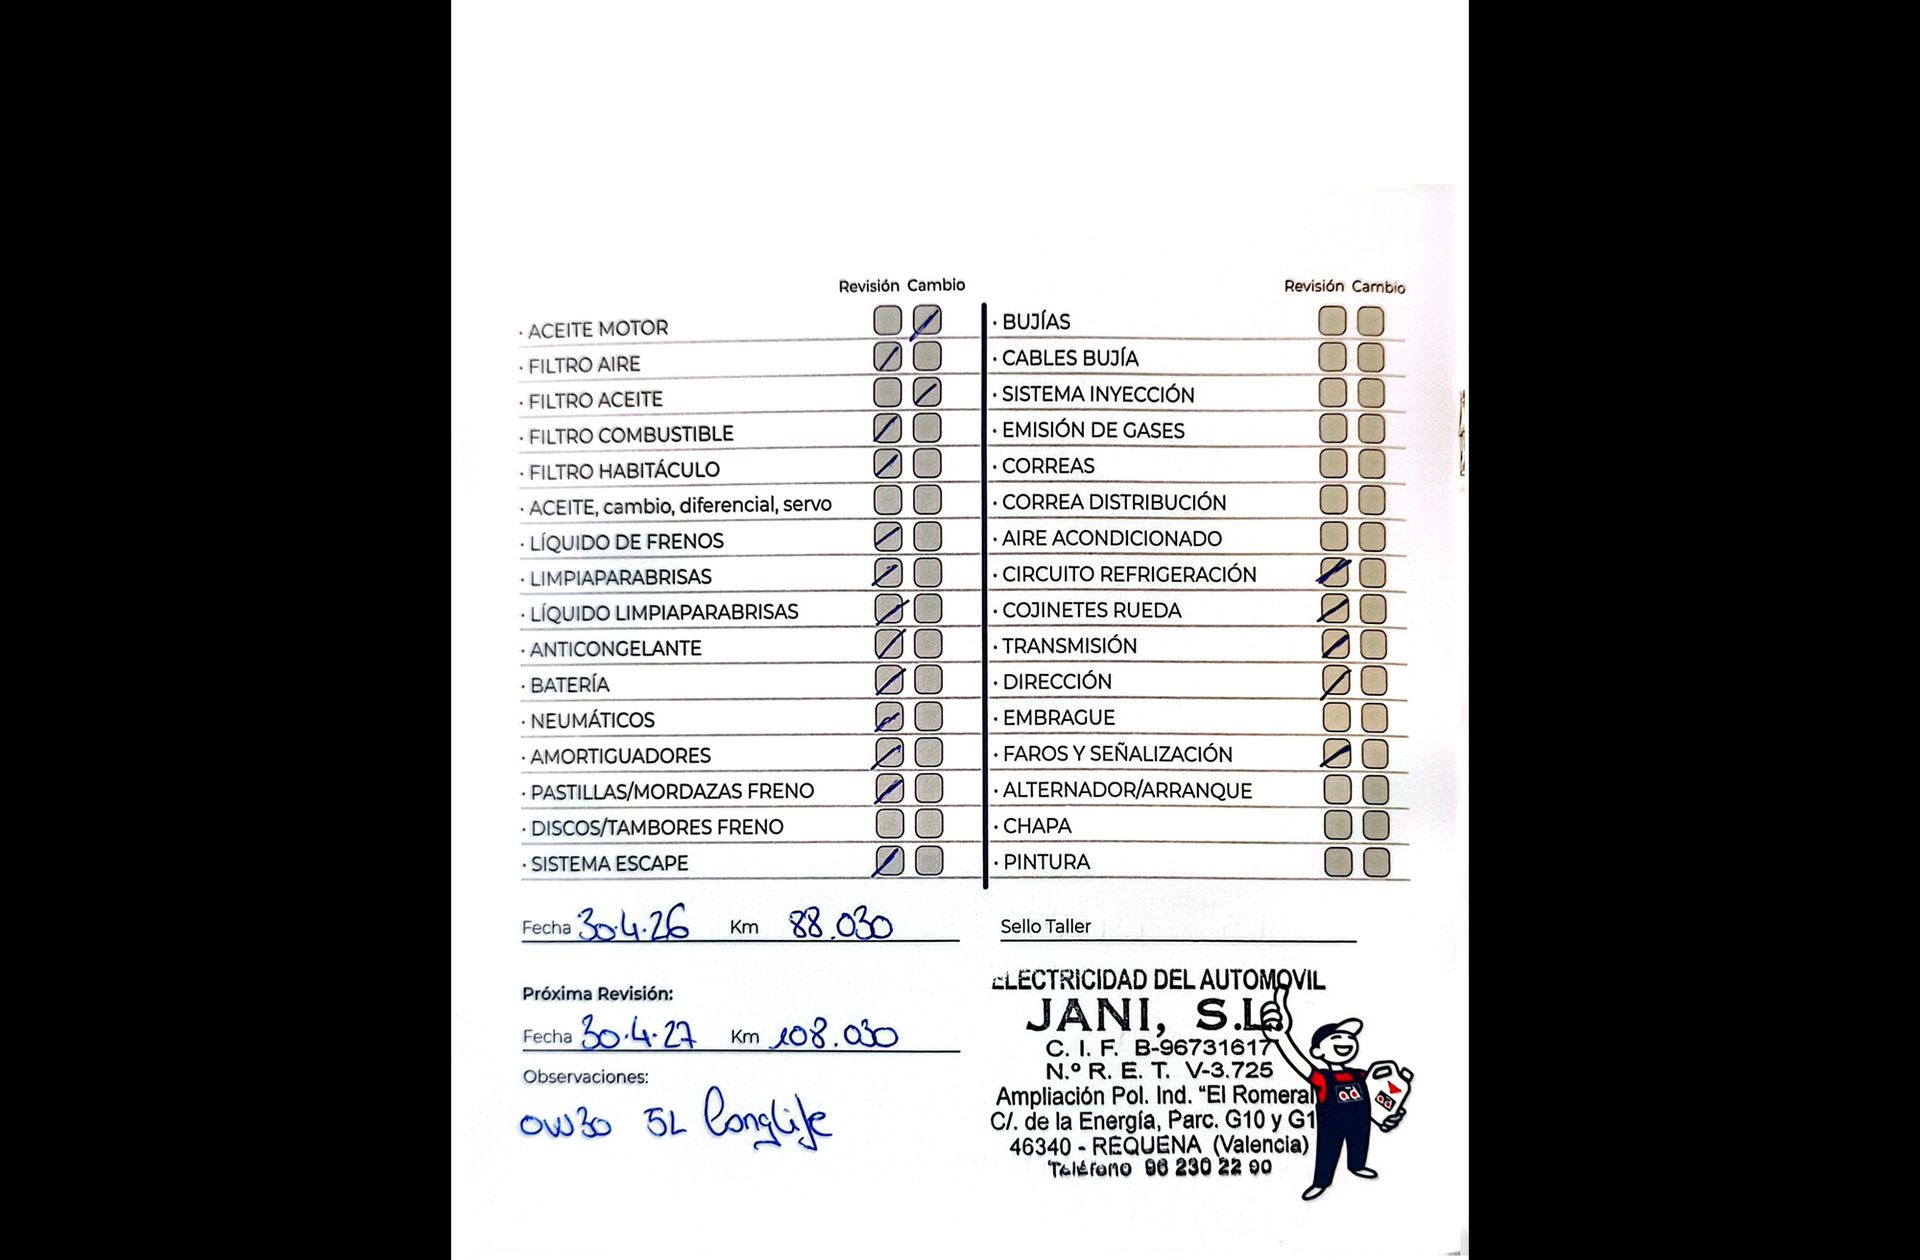 Revisión Cambio
· ACEITE MOTOR
· FILTRO AIRE
· FILTRO ACEITE
· FILTRO COMBUSTIBLE
· FILTRO HABITÁCULO
· ACEITE, cambio, diferencial, servo
· LÍQUIDO DE FRENOS
· LIMPIAPARABRISAS
· LÍQUIDO LIMPIAPARABRISAS
· ANTICONGELANTE
· BATERÍA
· NEUMÁTICOS
· AMORTIGUADORES
· PASTILLAS/MORDAZAS FRENO
· DISCOS/TAMBORES FRENO
· SISTEMA ESCAPE
Revisión Cambio
· BUJÍAS
· CABLES BUJÍA
· SISTEMA INYECCIÓN
· EMISIÓN DE GASES
· CORREAS
· CORREA DISTRIBUCIÓN
· AIRE ACONDICIONADO
· CIRCUITO REFRIGERACIÓN
· COJINETES RUEDA
· TRANSMISIÓN
· DIRECCIÓN
· EMBRAGUE
· FAROS Y SEÑALIZACIÓN
· ALTERNADOR/ARRANQUE
· CHAPA
· PINTURA
Fecha 30.4.26 Km 88.030
Próxima Revisión:
Fecha 30.4.27 Km 108.030
Observaciones:
0W30 5L Longlife
Sello Taller
ELECTRICIDAD DEL AUTOMOVIL
JANI, S.L.
C. I. F. B-96731617
N.º R. E. T. V-3.725
Ampliación Pol. Ind. "El Romeral
C/. de la Energía, Parc. G10 y G1
46340 - REQUENA (Valencia)
Teléfono 96 230 22 90
ad
ad